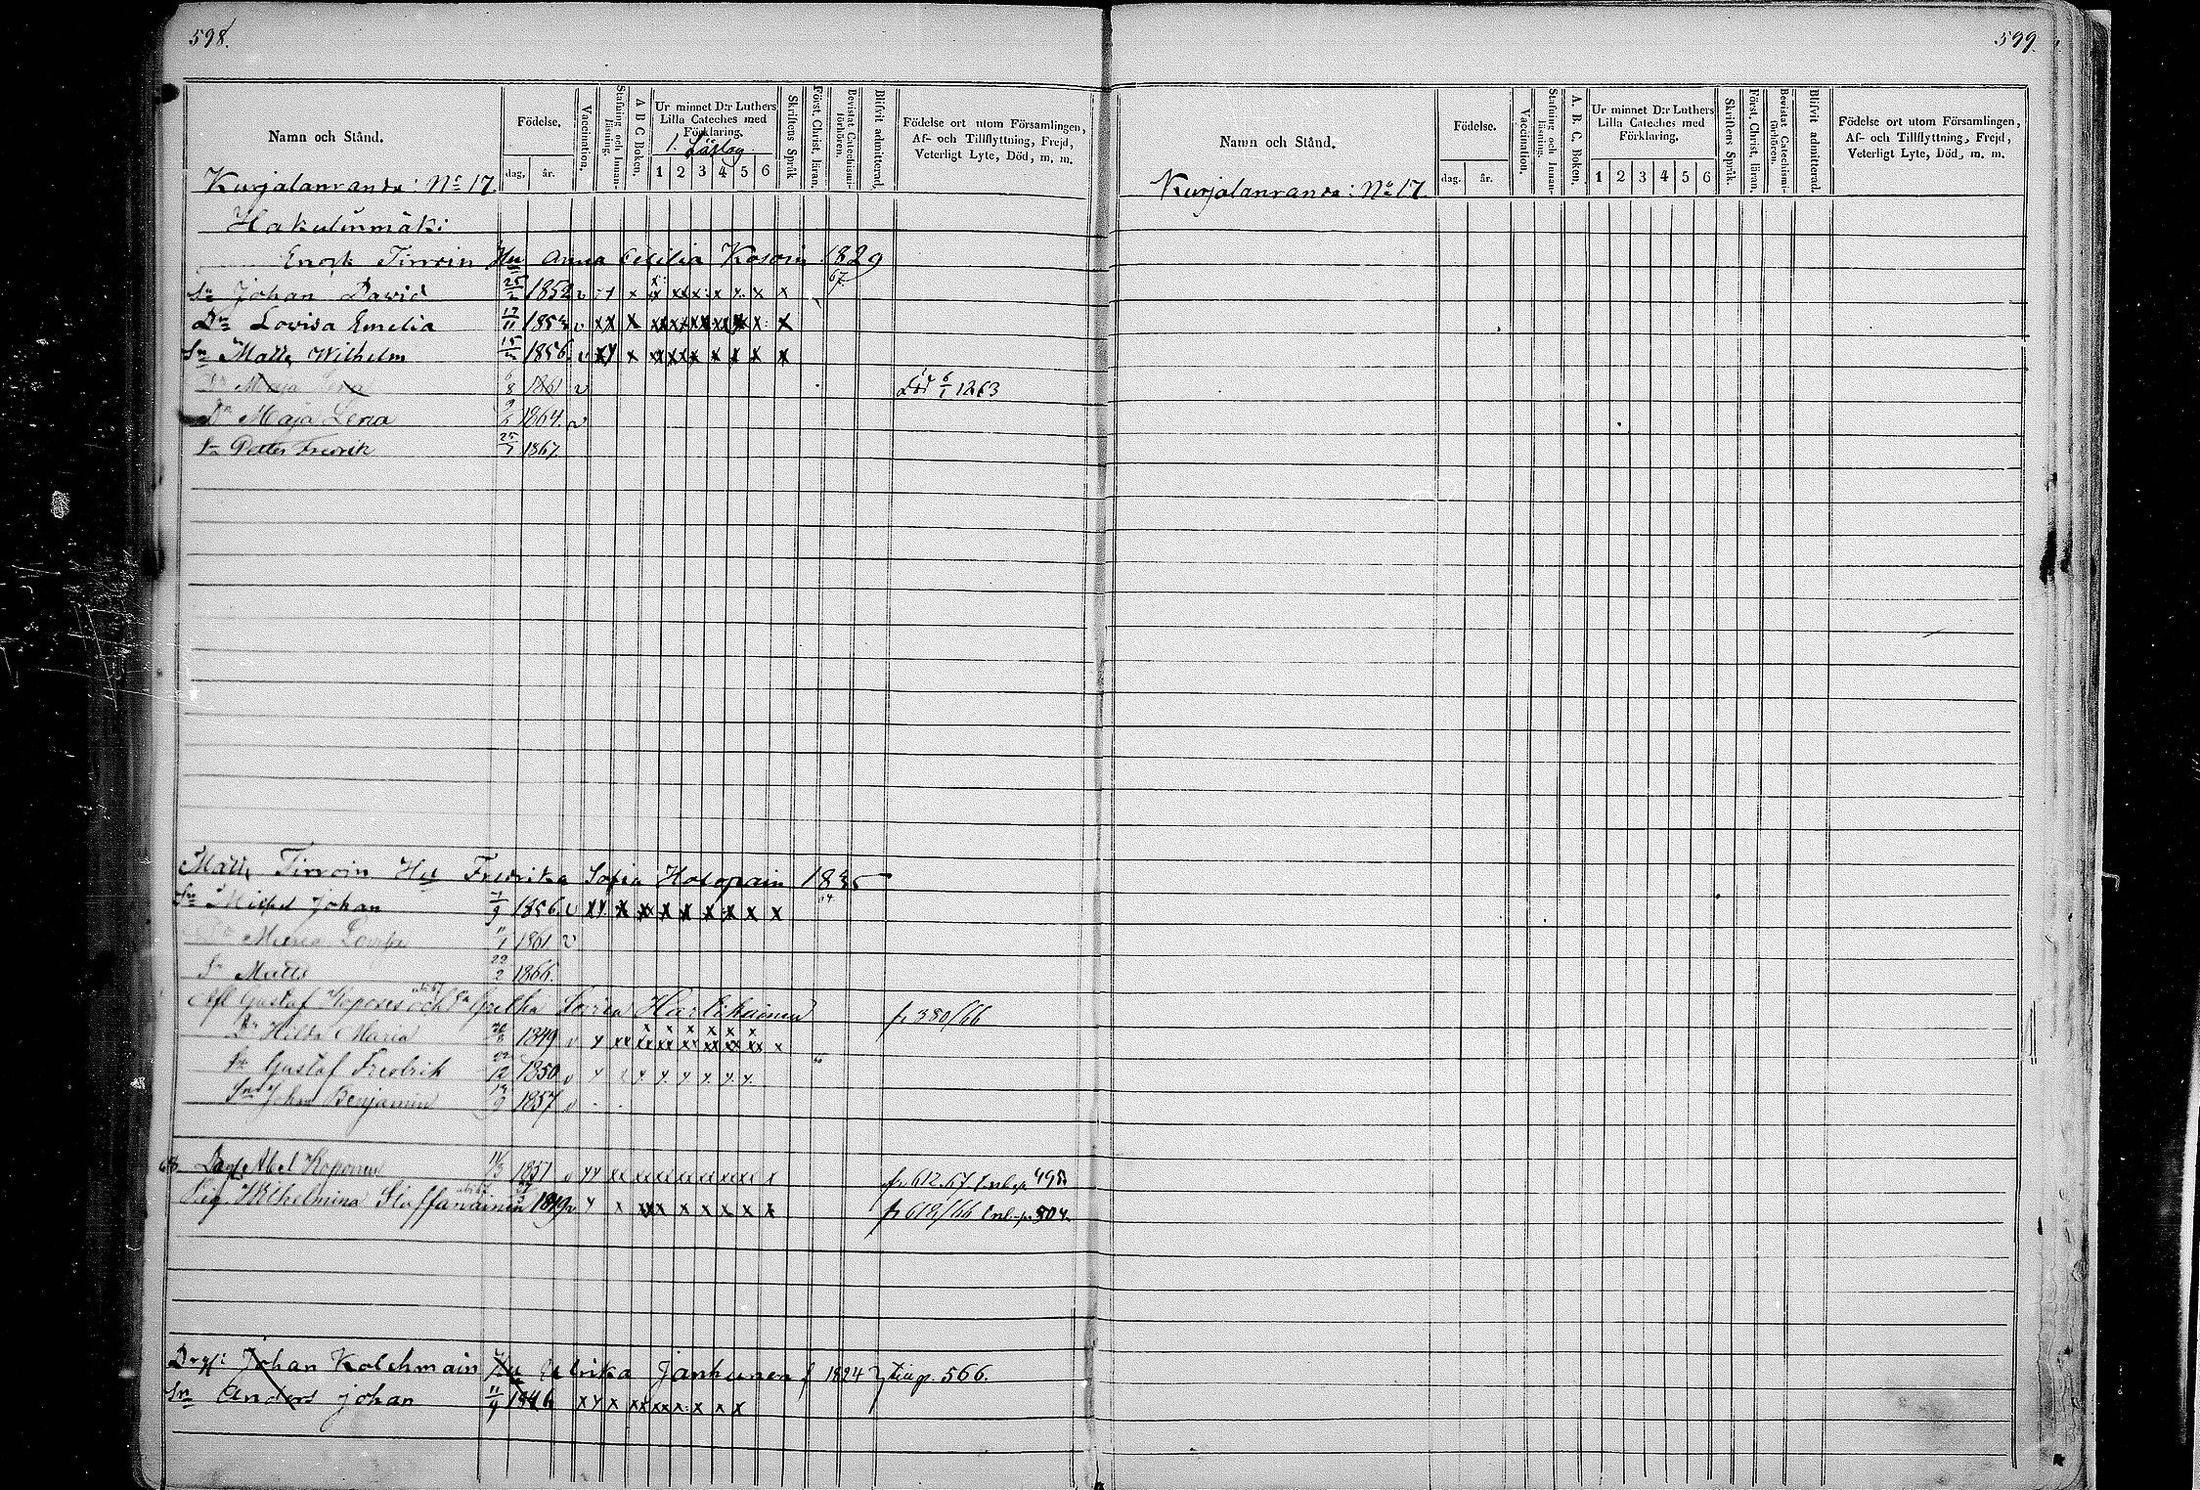 598.
Namn och Stånd.
Födelse.
dag. år.
Vaccination.
Stafning och Innanläsning.
A B C Boken.
Ur minnet D:r Luthers Lilla Cateches med Förklaring.
1. Läslag
1 2 3 4 5 6
Skriftens Språk
Först. Christ. läran.
Bevistat Catechismiförhören.
Blifvit admitterad.
Födelse ort utom Församlingen,
Af- och Tillflyttning, Frejd,
Veterligt Lyte, Död, m. m.
Kurjalanranda: No 17
Hakulinmäki
Enok Tirroin Hu Anna Cecilia Kosoin 1829
Sn Johan David 1852 v x x x x x x x 67
Dr Lovisa Emelia 17/11 1854 v xx x x x x x x x x
Sn Matts Wilhelm 15/ 1856 v xx x x x x x x x x
Dr Maja Lena 6/8 1861 v Död 6/1 1863
Dr Maja Lena 9/6 1864. v
Sn Petter Fredrik 25/7 1867
Matts Tirroin Hu Fredrika Sofia Holopain 1835
Sn Mikel Johan 1/9 1856 v xx x x x x x x x x
Dr Maria 11/1 1861 v
Sn Matts 22/2 1866.
Gustaf Koponen och Gretha Hartikainen fr 380/66
Dr Hilda Maria 1849 v x xx xx xx xx xx xx xx x
Sn Gustaf Fredrik 22/12 1850 v
Sn John Benjamin 1857 v
Abel Koponen 1851 v fr 612.67 495
Pig. Wilhelmina Staffanainen 1849 v fr 618/66 504
Johan Kolehmain Hu Ulrika Janhunen f 1824 566.
Sn Anders Johan 11/9 1846 x x x xx x x x x x
599.
Namn och Stånd.
Födelse.
dag. år.
Vaccination.
Stafning och Innanläsning.
A. B. C. Boken.
Ur minnet D:r Luthers Lilla Cateches med Förklaring.
1 2 3 4 5 6
Skriftens Språk.
Först. Christ. läran.
Bevistat Catechismiförhören.
Blifvit admitterad.
Födelse ort utom Församlingen,
Af- och Tillflyttning, Frejd,
Veterligt Lyte, Död, m. m.
Kurjalanranda: No 17.